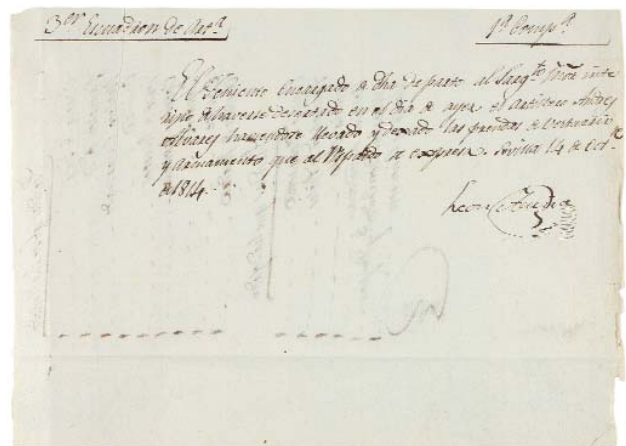 3er Escuadron de Art.a 1.a Comp.a
El Teniente Encargado de dha da parte al Sarg.to Mor inte
rino de haverse desertado en el dia de ayer el Artillero Andres
Alvares haviendose llevado y dexado las prendas de Vestuario
y Armamento que al respaldo se expresa. Sevilla 14 de Oct.e
de 1814.
Leon